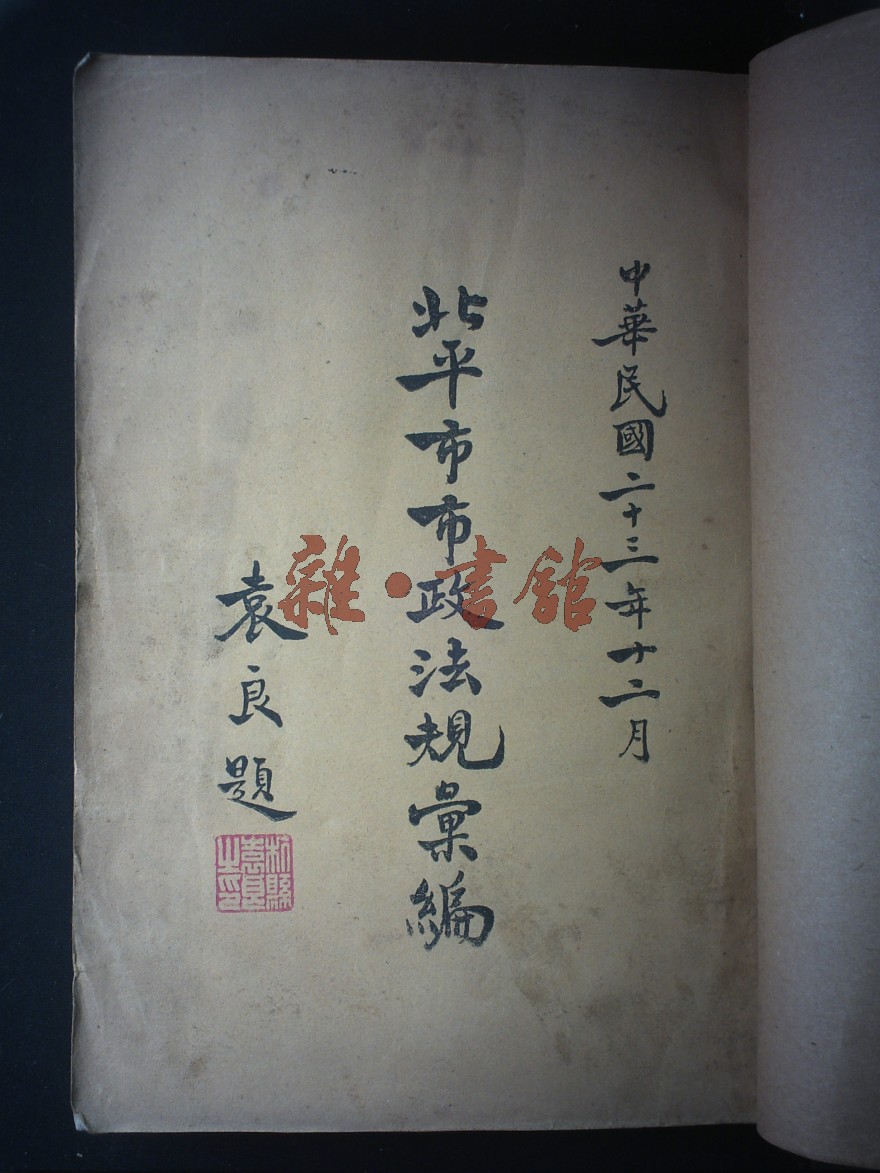 中華民國二十三年十二月
北平市市政法規彙編
袁良題
杭縣袁良之印
雜·書館